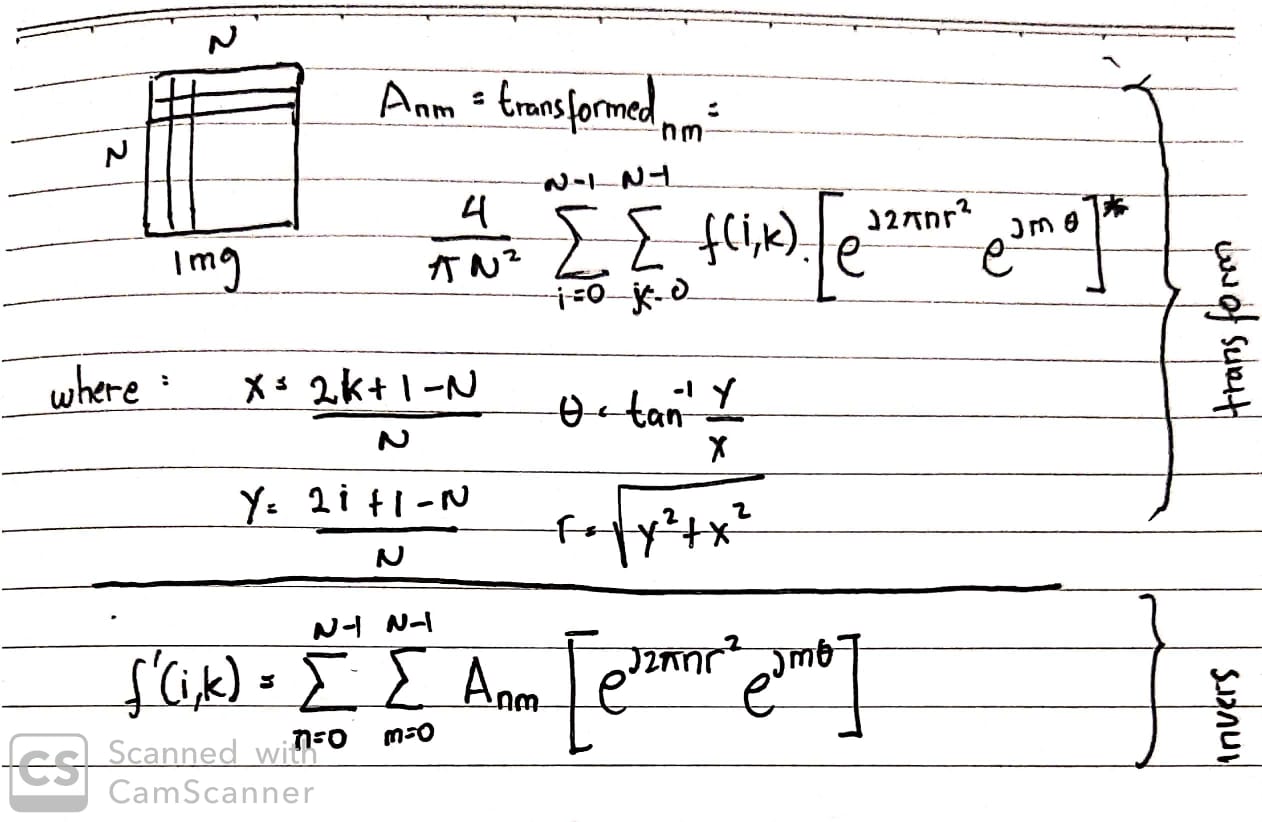 N
N
Img
Anm = transformed nm =
4/(πN²) Σ_{i=0}^{N-1} Σ_{k=0}^{N-1} f(i,k). [e^{j2πnr²} e^{jmθ}]*
where : x = (2k+1-N)/N θ = tan⁻¹ y/x
y = (2i+1-N)/N r = √(y²+x²)
transform
f'(i,k) = Σ_{n=0}^{N-1} Σ_{m=0}^{N-1} Anm [e^{j2πnr²} e^{jmθ}]
invers
CS Scanned with
CamScanner